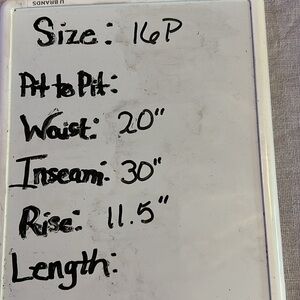 U BRANDS
Size: 16P
Pit to Pit:
Waist: 20"
Inseam: 30"
Rise: 11.5"
Length: